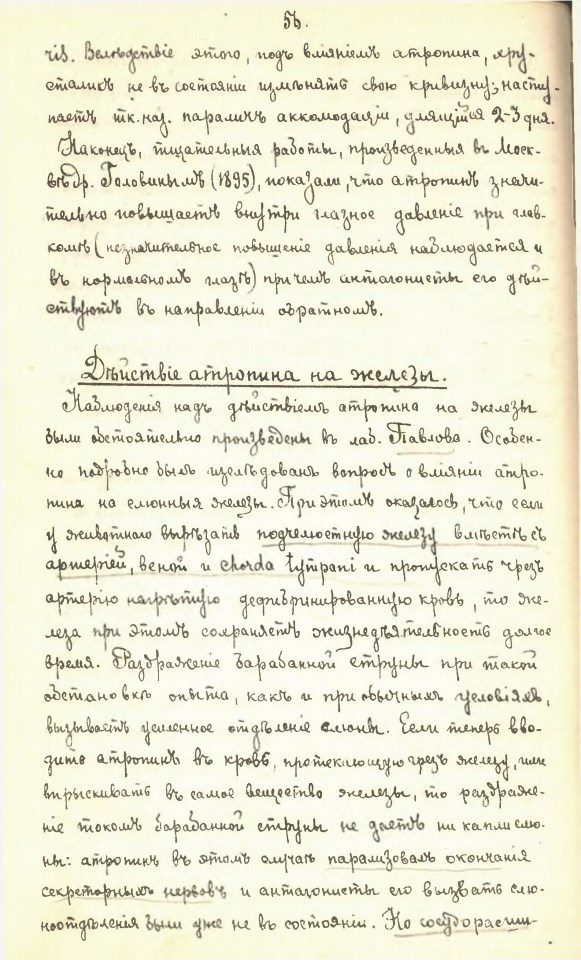 56.
ris. Вслѣдствіе этого, подъ вліяніемъ атропина, хру-
сталикъ не въ состояніи измѣнять свою кривизну; насту-
паетъ тк. наз. параличъ аккомодаціи, длящійся 2-3 дня.
Наконецъ, тщательныя работы, произведенныя въ Моск-
вѣ Др. Головинымъ (1895), показали, что атропинъ значи-
тельно повышаетъ внутри глазное давленіе при глав-
комѣ (незначительное повышеніе давленія наблюдается и
въ нормальномъ глазѣ) причемъ антагонисты его дѣй-
ствуютъ въ направленіи обратномъ.
Дѣйствіе атропина на железы.
Наблюденія надъ дѣйствіемъ атропина на железы
были обстоятельно произведены въ лаб. Павлова. Особен-
но подробно былъ изслѣдованъ вопросъ о вліяніи атро-
пина на слюнныя железы. При этомъ оказалось, что если
у животнаго вырѣзать подчелюстную железу вмѣстѣ съ
артеріей, веной и chorda tympani и пропускать чрезъ
артерію нагрѣтую дефибринированную кровь, то же-
леза при этомъ сохраняетъ жизнедѣятельность долгое
время. Раздраженіе барабанной струны при такой
обстановкѣ опыта, какъ и при обычныхъ условіяхъ,
вызываетъ усиленное отдѣленіе слюны. Если теперь вво-
дить атропинъ въ кровь, протекающую чрезъ железу, или
впрыскивать въ самое вещество железы, то раздраже-
ніе токомъ барабанной струны не даетъ ни капли слю-
ны: атропинъ въ этомъ случаѣ парализовалъ окончанія
секреторныхъ нервовъ и антагонисты его вызвать слю-
ноотдѣленія были уже не въ состояніи. Но сосудорасши-